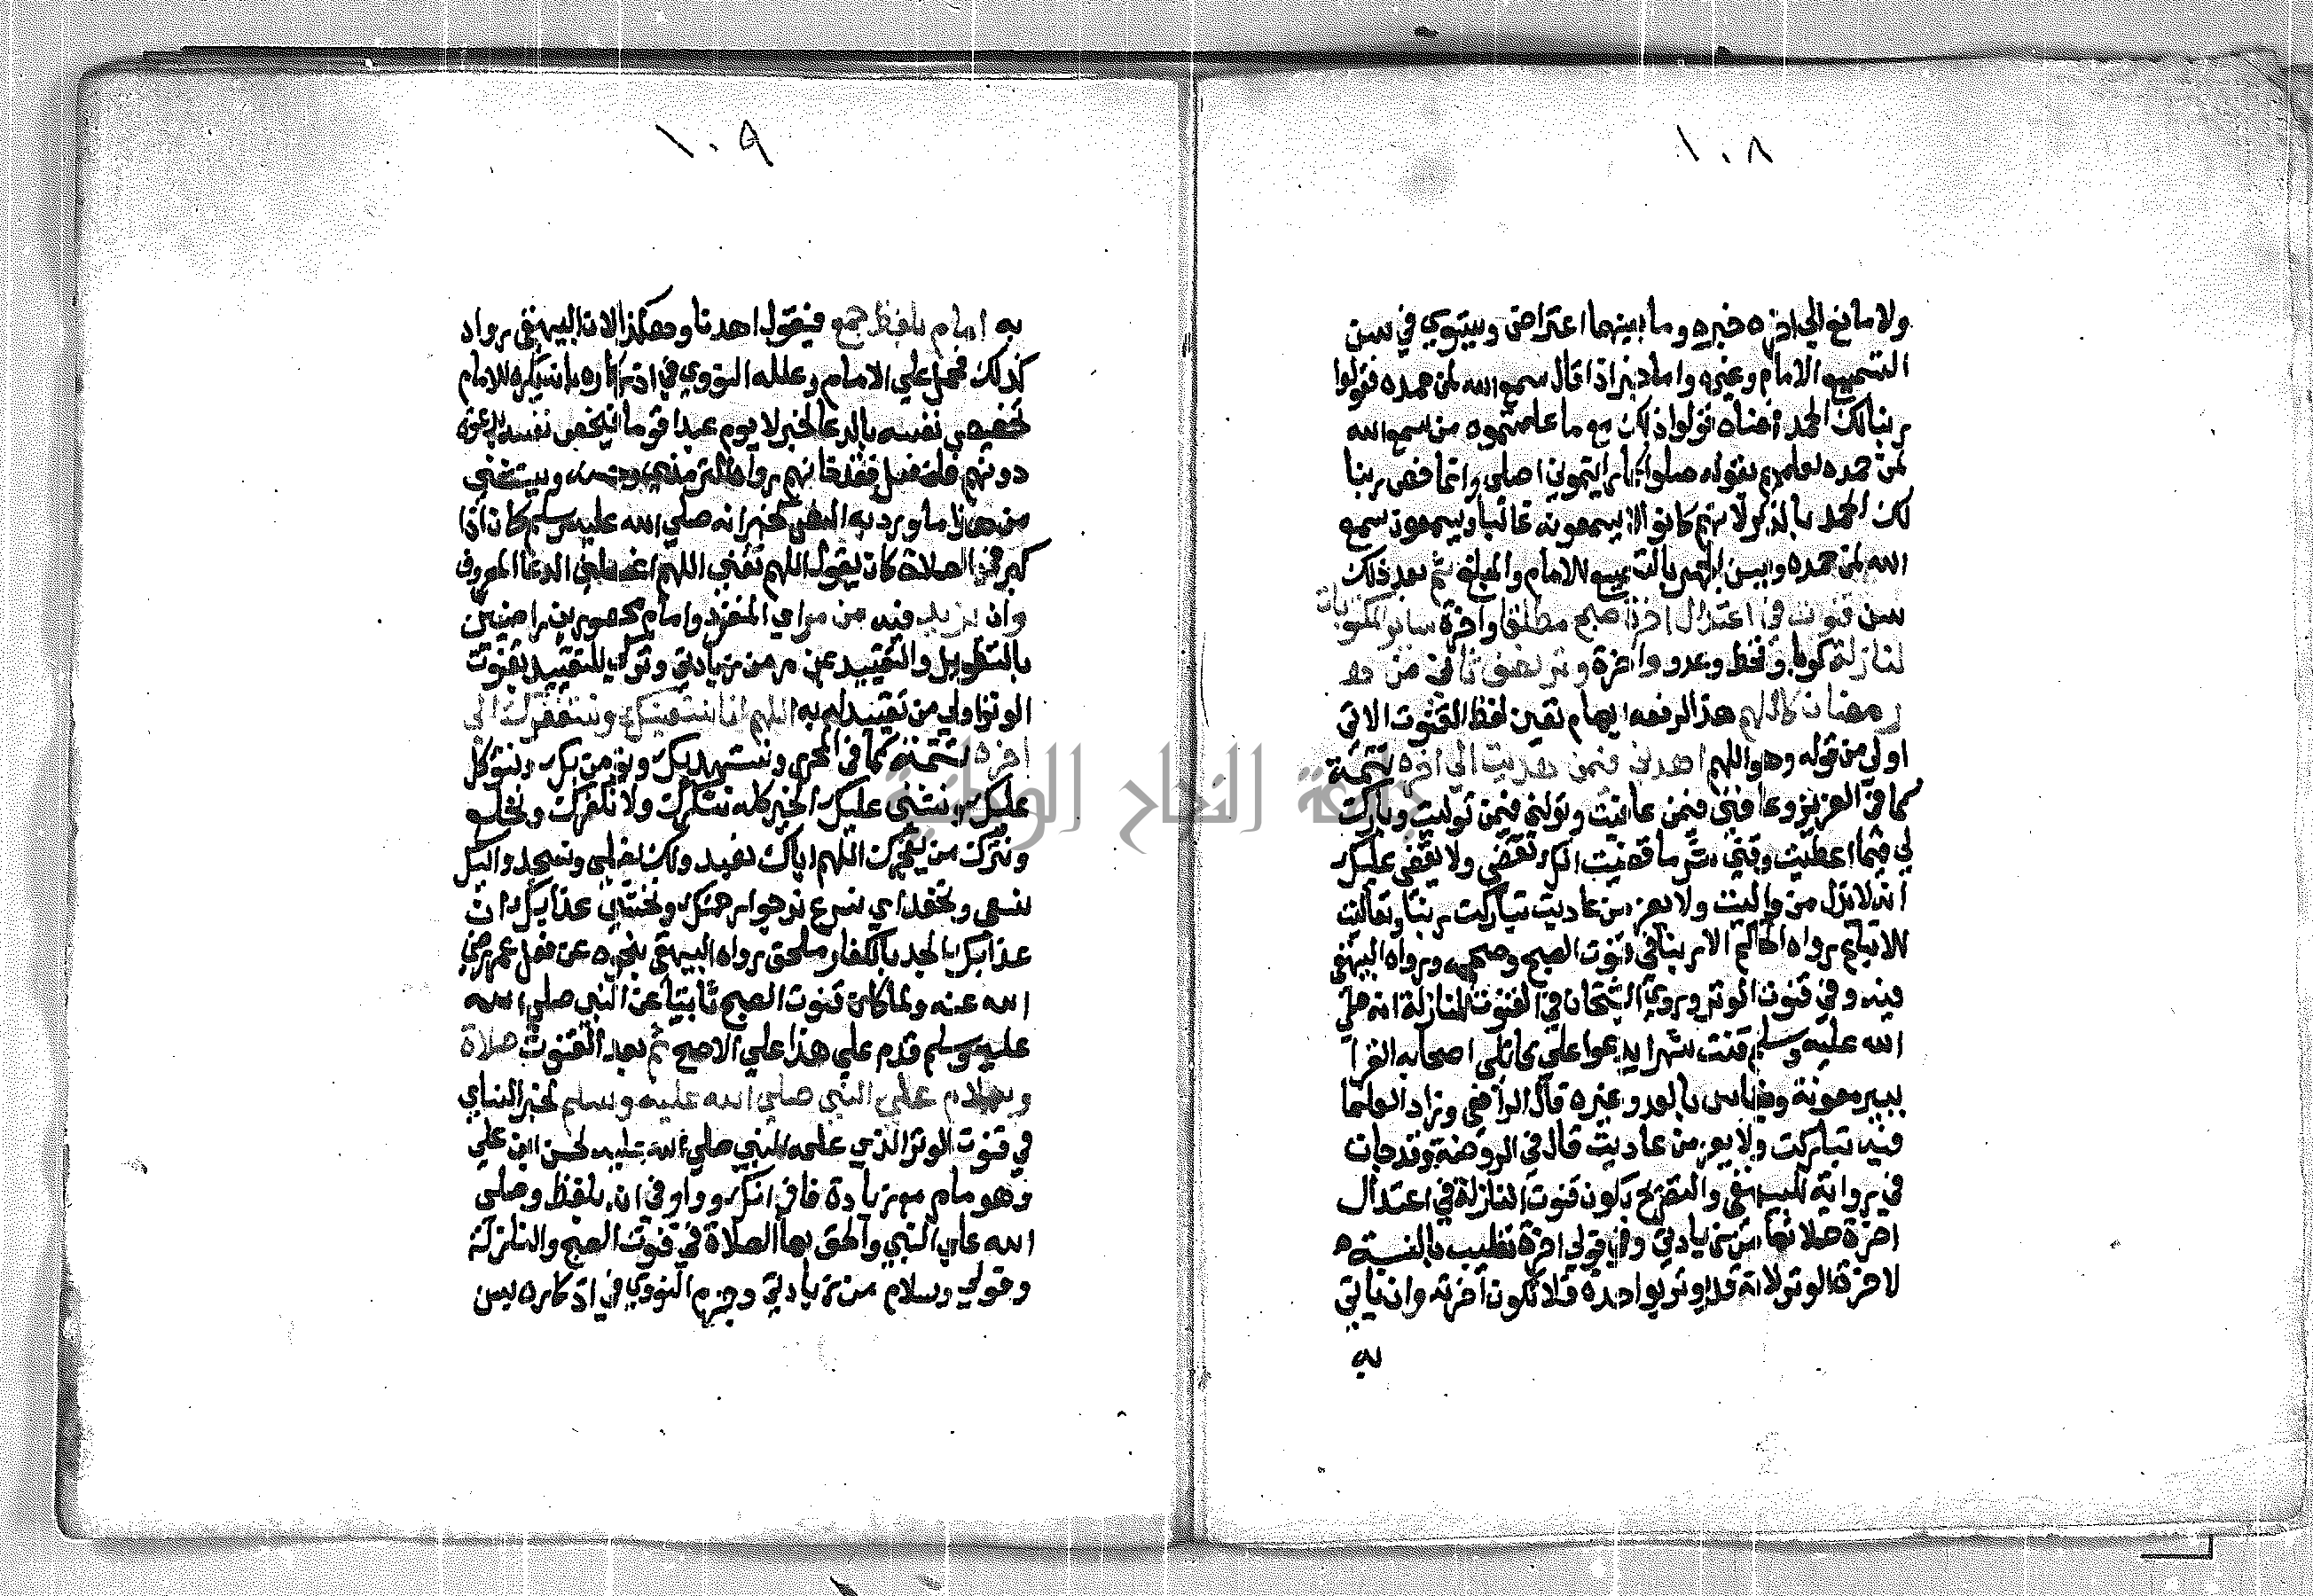 ١٠٨
ولا مانع الي اخره خبره وما بينهما اعتراض ويستوي في سن
التسميع الامام وغيره واما خبر اذا قال سمع الله لمن حمده فقولوا
ربنا لك الحمد فمعناه قولوا ذلك مع ما علمتموه من سمع الله
لمن حمده لعلمهم بقوله صلوا كما رايتموني اصلي وانما خص ربنا
لك الحمد بالذكر لانهم كانوا لا يسمعونه غالبا ويسمعون سمع
الله لمن حمده ويسن الجهر بالتسميع للامام والمبلغ ثم بعد ذلك
سن قنوت في اعتدال اخرة صبح مطلقا واخرة ساير المكتوبات
لنازلة كوبا وقحط وعدو واخرة وتر نصف ثاني من
رمضان كاللهم هذا لرفعه ايهام تعين لفظ القنوت الاتي
اولي من قوله وهو اللهم اهدني فيمن هديت الي اخره تتمته
كما في العزيز وعافني فيمن عافيت وتولني فيمن توليت وبارك
لي فيما اعطيت وقني شر ما قضيت انك تقضي ولا يقضي عليك
انه لا يذل من واليت ولا يعز من عاديت تباركت ربنا وتعاليت
للاتباع رواه الحاكم الا ربنا في قنوت الصبح وصححه ورواه البيهقي
فيه وفي قنوت الوتر وروي الشيخان في القنوت للنازلة انه صلي
الله عليه وسلم قنت شهرا يدعوا علي قاتلي اصحابه القرا
ببير معونة وقياس بالعدو غيره قال الرافعي وزاد العلما
فيه تباركت ولا يعز من عاديت قال في الروضة وقد جات
في رواية للبيهقي والتصريح بكون قنوت النازلة في اعتدال
اخرة صلاتها من زيادتي وفي قولي اخرة تغليب بالنسبة
لاخرة الوتر لانه قد يوتر بواحدة فلا تكون اخرته وان ياتي
به
١٠٩
به امام بلفظ جمع فيقول اهدنا وهكذا لان البيهقي رواه
كذلك فحمل علي الامام وعلله النووي في اذكاره بانه يكره للامام
تخصيص نفسه بالدعا لخبر لا يوم عبد قوما فيخص نفسه بدعوة
دونهم فان فعل فقد خانهم رواه الترمذي وحسنه ويستثني
من هذا ما ورد به النص لخبر انه صلي الله عليه وسلم كان اذا
كبر في الصلاة كان يقول اللهم نقني اللهم اغسلني الدعا المعروف
وان يزيد فيه من مر اي المنفرد وامام محصورين راضين
بالتطويل والتقييد بمن مر من زيادتي وتركي للتقييد بقنوت
الوتر اولي من تقييده له به اللهم انا نستعينك ونستغفرك الي
اخره تتمته كما في المحرر ونستهديك ونومن بك ونتوكل
عليك ونثني عليك الخير كله نشكرك ولا نكفرك ونخلع
ونترك من يفجرك اللهم اياك نعبد ولك نصلي ونسجد واليك
نسعي ونحفد اي نسرع نرجوا رحمتك ونخشي عذابك ان
عذابك الجد بالكفار ملحق رواه البيهقي بنحوه عن فعل عمر رضي
الله عنه ولما كان قنوت الصبح ثابتا عن النبي صلي الله
عليه وسلم قدم علي هذا علي الاصح ثم بعد القنوت صلاة
وسلام علي النبي صلي الله عليه وسلم لخبر النساي
في قنوت الوتر الذي علمه النبي صلي الله عليه لحسن ابن علي
وهو ما مر مع زيادة فا في انك وواو في انه بلفظ وصلي
الله علي النبي والحق بها الصلاة في قنوت الصبح والنازلة
وقولي وسلام من زيادتي وجزم النووي في اذكاره بسن
جامعة النجاح الوطنية